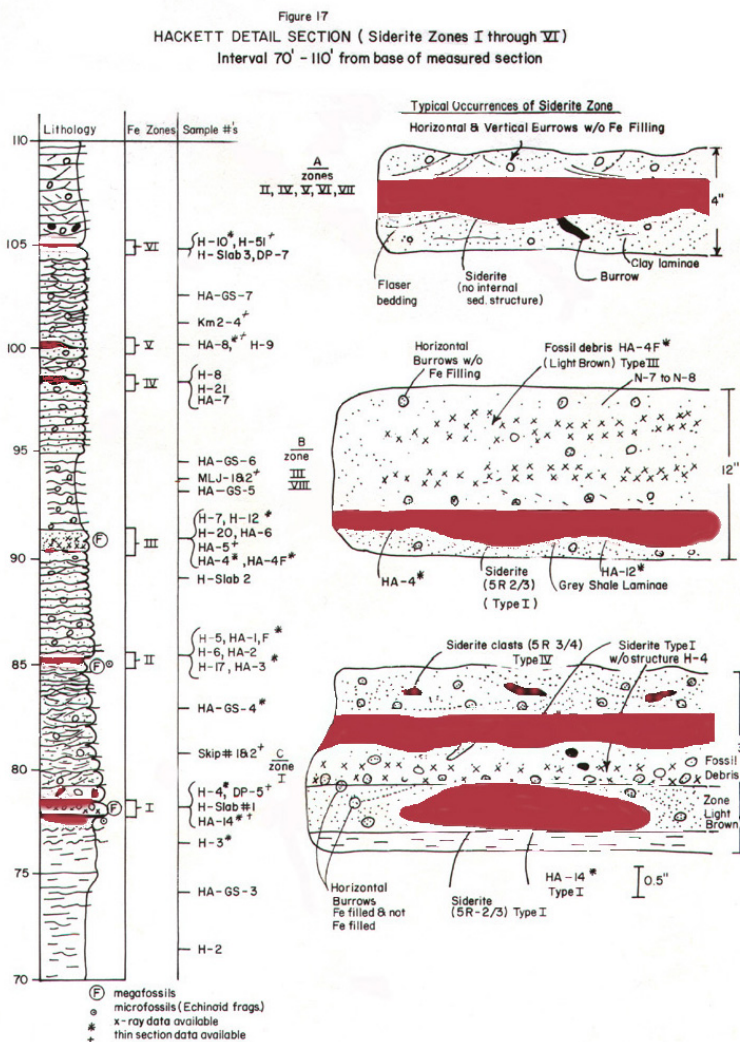 Figure 17
HACKETT DETAIL SECTION ( Siderite Zones I through VI)
Interval 70' - 110' from base of measured section
Lithology
Fe Zones
Sample #'s
110
105
100
95
90
85
80
75
70
VI
V
IV
III
II
I
H-10*, H-51+
H-Slab 3, DP-7
HA-GS-7
Km2-4+
HA-8,*+ H-9
H-8
H-21
HA-7
HA-GS-6
MLJ-1&2+
HA-GS-5
H-7, H-12 *
H-20, HA-6
HA-5+
HA-4*, HA-4F*
H-Slab 2
H-5, HA-1, F *
H-6, HA-2
H-17, HA-3 *
HA-GS-4*
Skip# 1&2+
H-4,* DP-5+
H-Slab #1
HA-14*+
H-3*
HA-GS-3
H-2
F
F
F
F megafossils
microfossils (Echinoid frags.)
* x-ray data available
+ thin section data available
Typical Occurrences of Siderite Zone
Horizontal & Vertical Burrows w/o Fe Filling
A
zones
II, IV, V, VI, VII
4"
Flaser
bedding
Siderite
(no internal
sed. structure)
Burrow
Clay laminae
B
zone
III
VIII
Horizontal
Burrows w/o
Fe Filling
Fossil debris HA-4F*
(Light Brown) Type III
N-7 to N-8
12"
HA-4*
Siderite
(5R 2/3)
(Type I)
HA-12*
Grey Shale Laminae
C
zone
I
Siderite clasts (5R 3/4)
Type IV
Siderite Type I
w/o structure H-4
Fossil
Debris
Zone
Light
Brown
Horizontal
Burrows
Fe filled & not
Fe filled
Siderite
(5R-2/3) Type I
HA-14*
Type I
0.5"